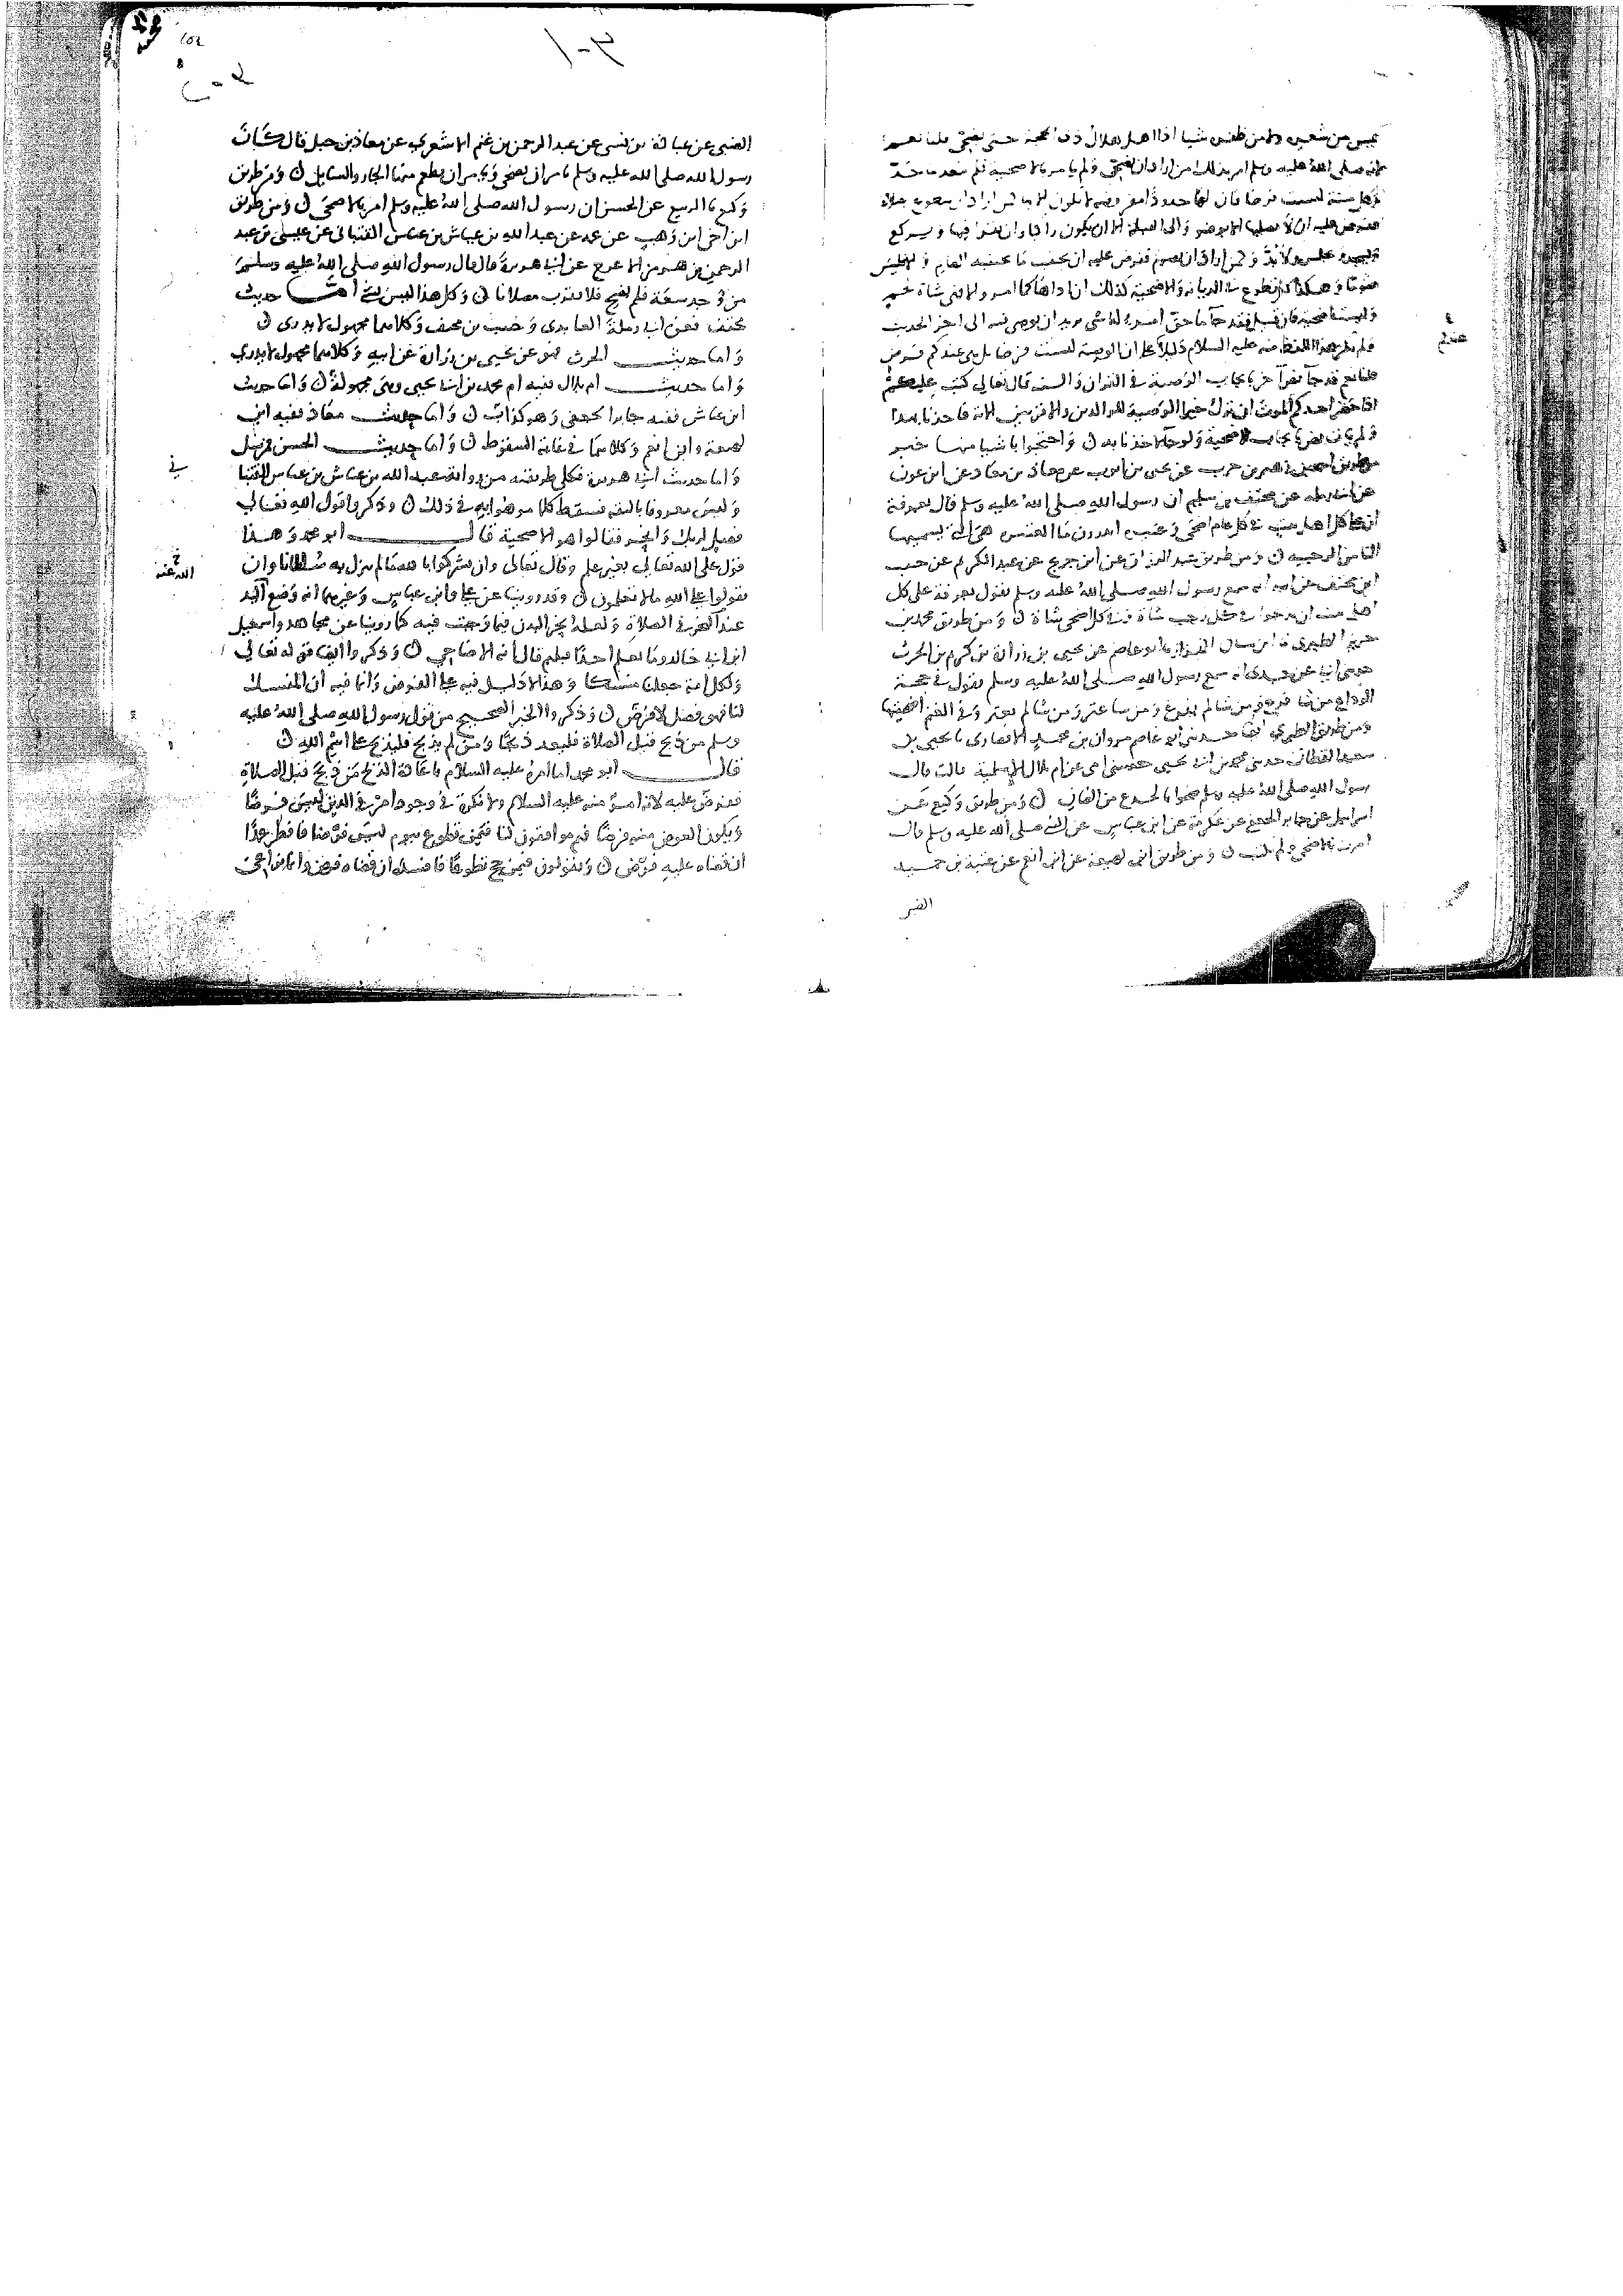 يمس من شعره ولا من ظفره شيا اذا اهل هلال ذى الحجة حتى يضحي قلنا نعم
لانه صلى الله عليه وسلم امر بذلك من اراد ان يضحي ولم يامر بالاضحية فلم نتعد ما حد
وكل سنة ليست فرضا فان لها حدودا مفروضة لا تكون الا بها كمن اراد ان يتطوع بصلاة
ففرض عليه ان لا يصليها الا بوضو والى القبلة الا ان يكون راكبا وان يقرا فيها ويركع
ويسجد ويجلس ولا بد وكمن اراد ان يصوم ففرض عليه ان يجتنب ما يجتنبه الصايم والا فليس
صوما وهكذا كل تطوع في الديانة والاضحية كذلك ان اداها كما امر والا فهى شاة لحم
وليست اضحية فان قيل فقد جا ما حق امرء له شي يريد ان يوصى فيه الى اخر الحديث
فلم تكن هذه اللفظة منه عليه السلام دليلا على ان الوصية ليست فرضا بل هى عندكم فرض
قلنا نعم قد جا نص اخر بايجاب الوصية في القران والسنة قال تعالى كتب عليكم
اذا حضر احدكم الموت ان ترك خيرا الوصية للوالدين والاقربين الاية فاخذنا بهذا
ولم يات نص بايجاب الاضحية ولو جا لاخذنا به ن واحتجوا باشيا منها خبر
من طريق احمد بن زهير بن حرب عن يحيى بن ايوب عن معاذ بن معاذ عن ابن عون
عن ابى رملة عن مخنف بن سليم ان رسول الله صلى الله عليه وسلم قال بعرفة
ان على كل اهل بيت في كل عام اضحى وعتيرة اتدرون ما العتيرة هى التى يسميها
الناس الرجبية ن ومن طريق عبد الرزاق عن ابن جريج عن عبد الكريم عن حبيب
ابن مخنف عن ابيه انه سمع رسول الله صلى الله عليه وسلم يقول بعرفة على كل
اهل بيت ان يذبحوا في كل رجب شاة وفي كل اضحى شاة ن ومن طريق محمد بن
جرير الطبرى نا ابن سنان القزاز نا ابو عاصم عن يحيى بن زرارة بن كريم بن الحرث
حدثني ابى عن جده انه سمع رسول الله صلى الله عليه وسلم يقول في حجة
الوداع من شا فرع ومن شا لم يفرع ومن شا عتر ومن شا لم يعتر وفي الغنم اضحيتها
ومن طريق الطبرى ايضا حدثني ابو عاصم مروان بن محمد الانصارى نا يحيى بن
سعيد القطان حدثني محمد بن ابى يحيى حدثتنى امى عن ام بلال الاسلمية قالت قال
رسول الله صلى الله عليه وسلم ضحوا بالجذع من الضان ن ومن طريق وكيع عن
اسرايل عن جابر الجعفي عن عكرمة عن ابن عباس عن النبي صلى الله عليه وسلم قال
امرت بالاضحى ولم تكتب ن ومن طريق ابن لهيعة عن ابن انعم عن عتبة بن حميد
الضبى
الضبى عن عبادة بن نسى عن عبد الرحمن بن غنم الاشعري عن معاذ بن جبل قال كان
رسول الله صلى الله عليه وسلم يامر ان نضحى ويامر ان نطعم منها الجار والسايل ن ومن طريق
وكيع نا الربيع عن الحسن ان رسول الله صلى الله عليه وسلم امر بالاضحى ن ومن طريق
ابن اخى ابن وهب عن عمه عن عبد الله بن عياش بن عباس القتبانى عن عيسى بن عبد
الرحمن بن هرمز الاعرج عن ابى هريرة قال قال رسول الله صلى الله عليه وسلم
من وجد سعة فلم يضح فلا يقرب مصلانا ن وكل هذا ليس بشى اما حديث
مخنف فعن ابى رملة الغامدى وحبيب بن مخنف وكلاهما مجهول لا يدرى ن
واما حديث الحرث فهو عن يحيى بن زرارة عن ابيه وكلاهما مجهول لا يدرى
واما حديث ام بلال ففيه ام محمد بن ابى يحيى وهى مجهولة ن واما حديث
ابن عباس ففيه جابر الجعفى وهو كذاب ن واما حديث معاذ ففيه ابن
لهيعة وابن انعم وكلاهما في غاية السقوط ن واما حديث الحسن فمرسل
واما حديث ابى هريرة فكلى طريقيه من رواية عبد الله بن عياش بن عباس القتبا
في
وليس معروفا بالثقة فسقط كل ما موهوا به في ذلك ن وذكروا قول الله تعالى
فصل لربك وانحر فقالوا هو الاضحية قال ابو محمد وهذا
قول على الله تعالى بغير علم وقال تعالى وان تشركوا بالله ما لم ينزل به سلطانا وان
تقولوا على الله ما لا تعلمون ن وقد روينا عن على وابن عباس وغيرهما انه وضع اليد
عند النحر في الصلاة ولعله نحر البدن فيما وجبت فيه كما روينا عن مجاهد واسمعيل
ابن ابى خالد وما نعلم احدا قبلهم قال انه الاضاحي ن وذكروا ايضا قوله تعالى
ولكل امة جعلنا منسكا وهذا لا دليل فيه على الفرض وانما فيه ان المنسك
لنا فهو فضل لا فرض ن وذكروا الخبر الصحيح من قول رسول الله صلى الله عليه
وسلم من ذبح قبل الصلاة فليعد ذبحا ومن لم يذبح فليذبح على اسم الله ن
قال ابو محمد اما امره عليه السلام باعادة الذبح من ذبح قبل الصلاة
ففرض عليه لانه امر منه عليه السلام ولا نكرة في وجود امر في الدين ليس فرضا
ويكون العوض منه فرضا فهم موافقون لنا فيمن تطوع بيوم ليس فرضا فافطر عمدا
ان قضاه عليه فرض ن ويقولون فيمن حج تطوعا فافسده ان قضاه فرض